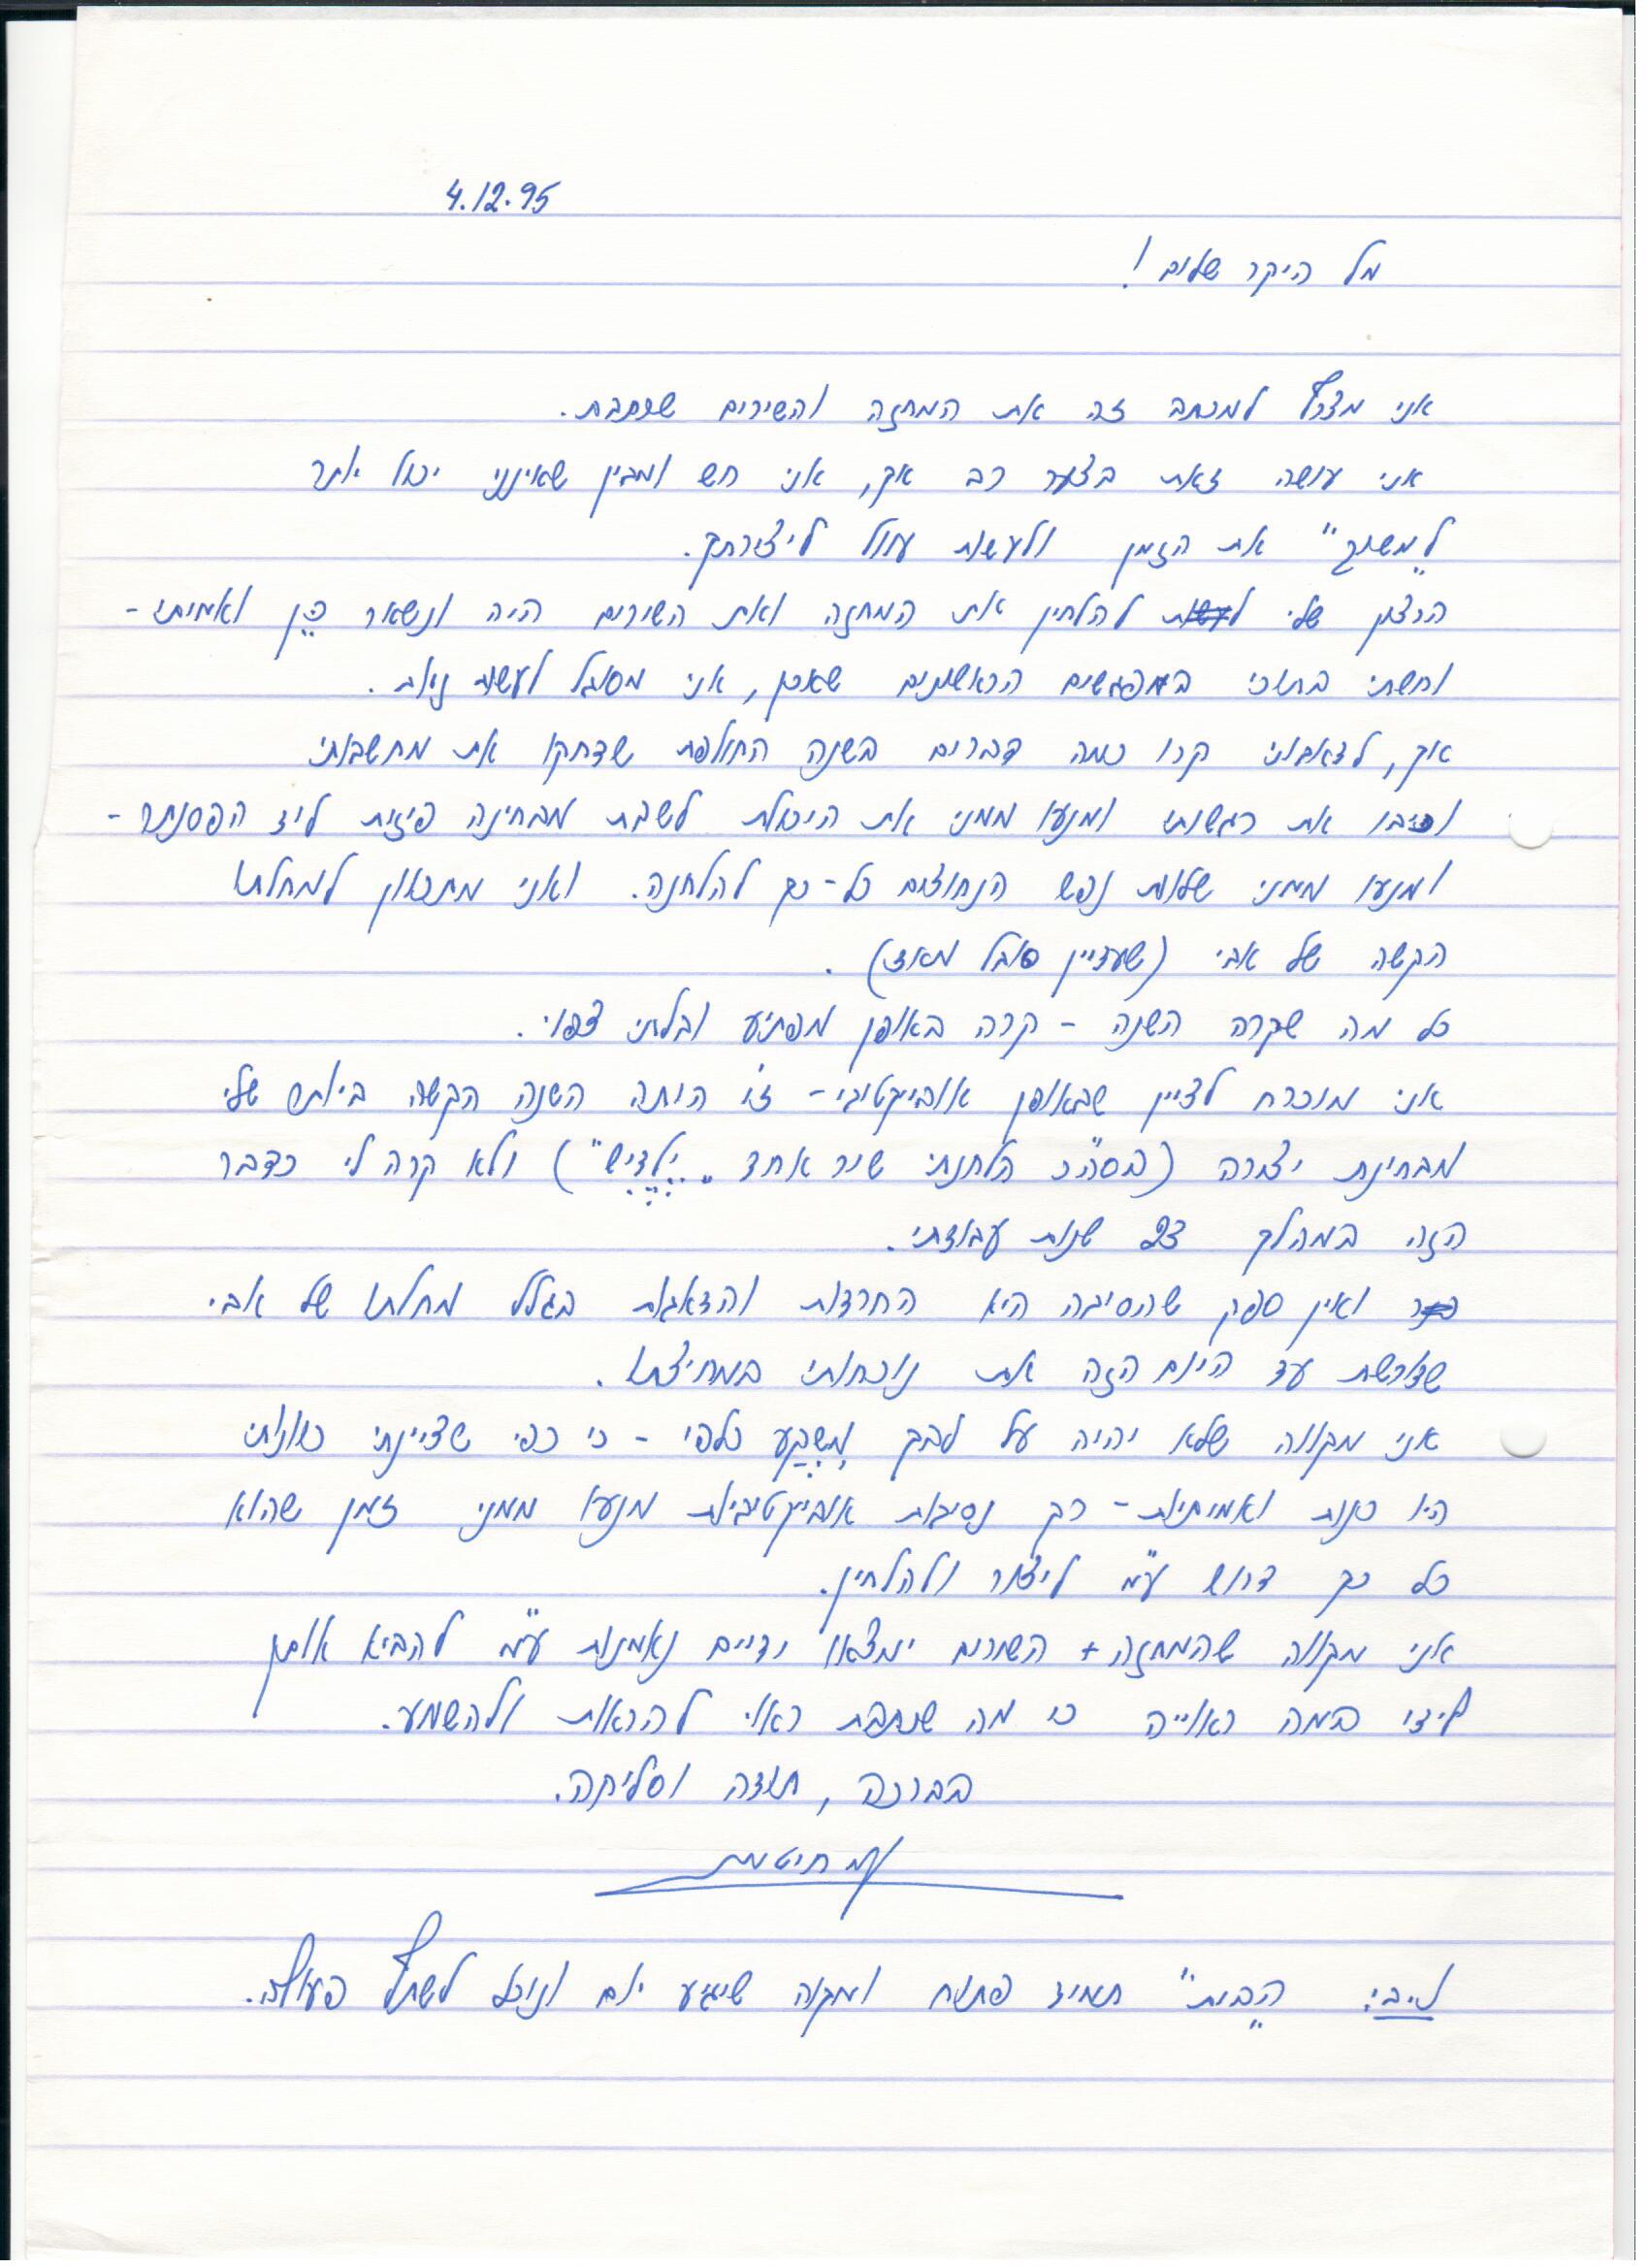 4.12.95
מל היקר שלום!
אני מצרף למכתב זה את המחזה והשירים שכתבת.
אני עושה זאת בצער רב אך, אני חש ומבין שאינני יכול יותר
"למשוך" את הזמן ולעשות עוול ליצירתך.
הרצון שלי להלחין את המחזה ואת השירים היה ונשאר כֵּן ואמיתי -
וחשתי בתוכי במפגשים הראשונים שאכן, אני מסוגל לעשות זאת.
אך, לדאבוני קרו כמה דברים בשנה החולפת שדחקו את מחשבותי
את רגשותי ומנעו ממני את היכולת לשבת מבחינה פיזית ליד הפסנתר -
ומנעו ממני שלוות נפש הנחוצים כל-כך להלחנה. ואני מתכוון למחלתו
הקשה של אבי (שעדיין סובל מאוד).
כל מה שקרה השנה - קרה באופן מפתיע ובלתי צפוי.
אני מוכרח לציין שבאופן אובייקטיבי - זו היתה השנה הקשה ביותר שלי
מבחינת יצירה (בסה"כ הלחנתי שיר אחד "יֶלֶדִישׁ") ולא קרה לי כדבר
הזה במהלך 23 שנות עבודתי.
ואין ספק שהסיבה היא החרדות והדאגות בגלל מחלתו של אבי
שדורשת עד היום הזה את נוכחותי במחיצתו.
אני מקווה שלא יהיה על לבך מִשְׁקָע כלפי - כי כפי שציינתי כוונותי
היו כנות ואמיתיות - רק נסיבות אובייקטיביות מנעו ממני זמן שהוא
כל כך דרוש ע"מ ליצור ולהלחין.
אני מקווה שהמחזה + השירים ימצאו ידיים נאמנות ע"מ להביא אותן
לידי במה ראוייה כי מה שכתבת ראוי להראות ולהשמע.
בברכה, תודה וסליחה.
חיטמן
ליבי. "הבית" תמיד פתוח ומקוה שיגיע יום ונוכל לשתף פעולה.